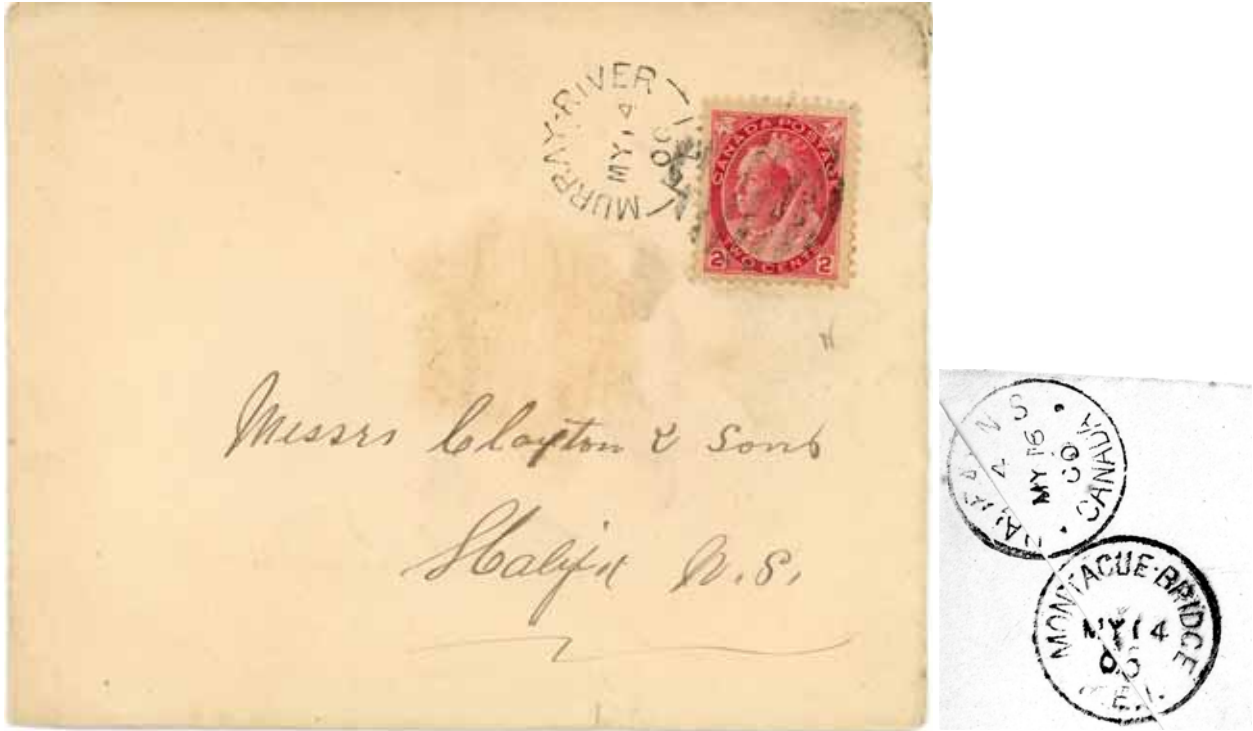 MURRAY-RIVER
MY 14
00
CANADA POSTAGE
TWO CENTS
2 2
Messrs Clayton & Sons
Halifx N.S.
N S
4
MY 16
00
CANADA
MONTAGUE-BRIDGE
MY 14
00
P.E.I.